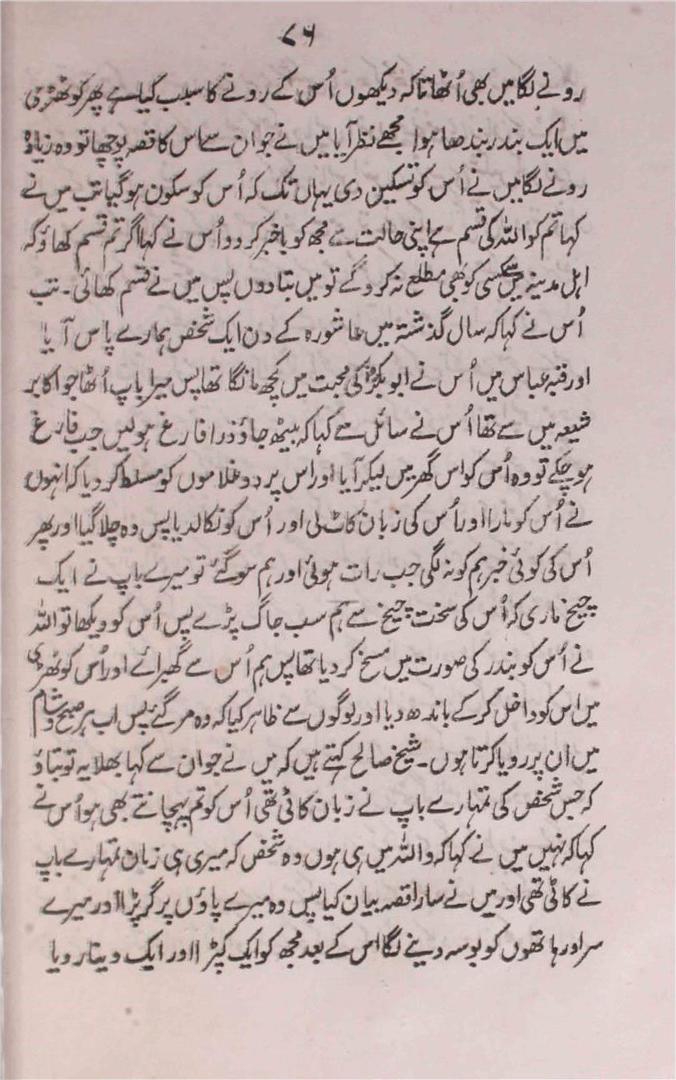 ۷۶
رونے لگا میں بھی اُٹھا تاکہ دیکھوں اُس کے رونے کا سبب کیا ہے پھر کوٹھڑی
میں ایک بندر بندھا ہوا مجھے نظر آیا میں نے جوان سے اس کا قصہ پوچھا تو وہ زیادہ
رونے لگا میں نے اُس کو تسکین دی یہاں تک کہ اُس کو سکون ہو گیا تب میں نے
کہا تم کو اللہ کی قسم ہے اپنی حالت سے مجھ کو باخبر کر دو اُس نے کہا اگر تم قسم کھاؤ کہ
اہل مدینہ میں سے کسی کو بھی مطلع نہ کرو گے تو میں بتا دوں پس میں نے قسم کھائی۔ تب
اُس نے کہا کہ سال گذشتہ میں عاشورہ کے دن ایک شخص ہمارے پاس آیا
اور قبہ عباس میں اُس نے ابوبکرؓ کی محبت میں کچھ مانگا تھا پس میرا باپ اُٹھا جو اکابر
شیعہ میں سے تھا اُس نے سائل سے کہا کہ بیٹھ جاؤ ذرا فارغ ہو لیں جب فارغ
ہو چکے تو وہ اُس کو اس گھر میں لیکر آیا اور اس پر دو غلاموں کو مسلط کر دیا کہ انہوں
نے اُس کو مارا اور اُس کی زبان کاٹ لی اور اُس کو نکالدیا پس وہ چلا گیا اور پھر
اُس کی کوئی خبر ہم کو نہ لگی جب رات ہوئی اور ہم سو گئے تو میرے باپ نے ایک
چیخ ماری کہ اُس کی سخت چیخ سے ہم سب جاگ پڑے پس اُس کو دیکھا تو اللہ
نے اُس کو بندر کی صورت میں مسخ کر دیا تھا پس ہم اُس سے گھبرائے اور اُس کوٹھڑی
میں اس کو داخل کر کے باندھ دیا اور لوگوں سے ظاہر کیا کہ وہ مر گئے پس اب ہر صبح و شام
میں ان پر رویا کرتا ہوں۔ شیخ صالح کہتے ہیں کہ میں نے جوان سے کہا بھلا یہ تو بتاؤ
کہ جس شخص کی تمہارے باپ نے زبان کاٹی تھی اُس کو تم پہچانتے بھی ہو اُس نے
کہا کہ نہیں میں نے کہا کہ واللہ میں ہی ہوں وہ شخص کہ میری ہی زبان تمہارے باپ
نے کاٹی تھی اور میں نے سارا قصہ بیان کیا پس وہ میرے پاؤں پر گر پڑا اور میرے
سر اور ہاتھوں کو بوسہ دینے لگا اس کے بعد مجھ کو ایک کپڑا اور ایک دینار دیا